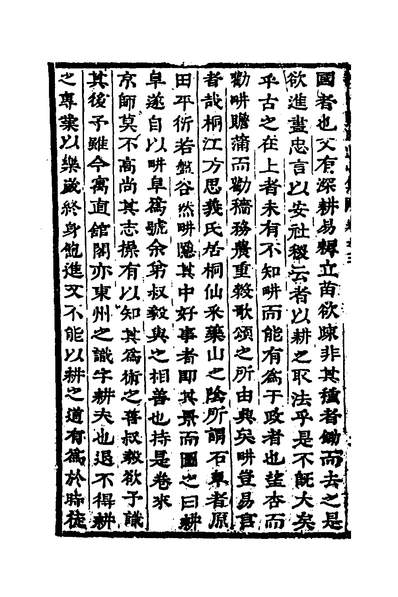 國者也又有深耕易耨立苗欲疎非其種者鋤而去之是
欲進盡忠言以安社稷云者以耕之取法乎是不既大矣
乎古之在上者未有不知耕而能有爲于政者也望杏而
勸耕瞻蒲而勸穡務農重穀歌頌之所由興矣耕豈易言
者哉桐江方思義氏居桐仙采藥山之陰所謂石阜者原
田平衍若盤谷然耕隱其中好事者即其景而圖之曰耕
阜遂自以耕阜爲號余弟叔毅與之相善也持是卷來
京師莫不高尚其志操有以知其爲術之善叔毅欲予識
其後予雖今寓直館閣亦東州之識字耕夫也退不得耕
之專業以樂歲終身飽進又不能以耕之道有爲於時徒